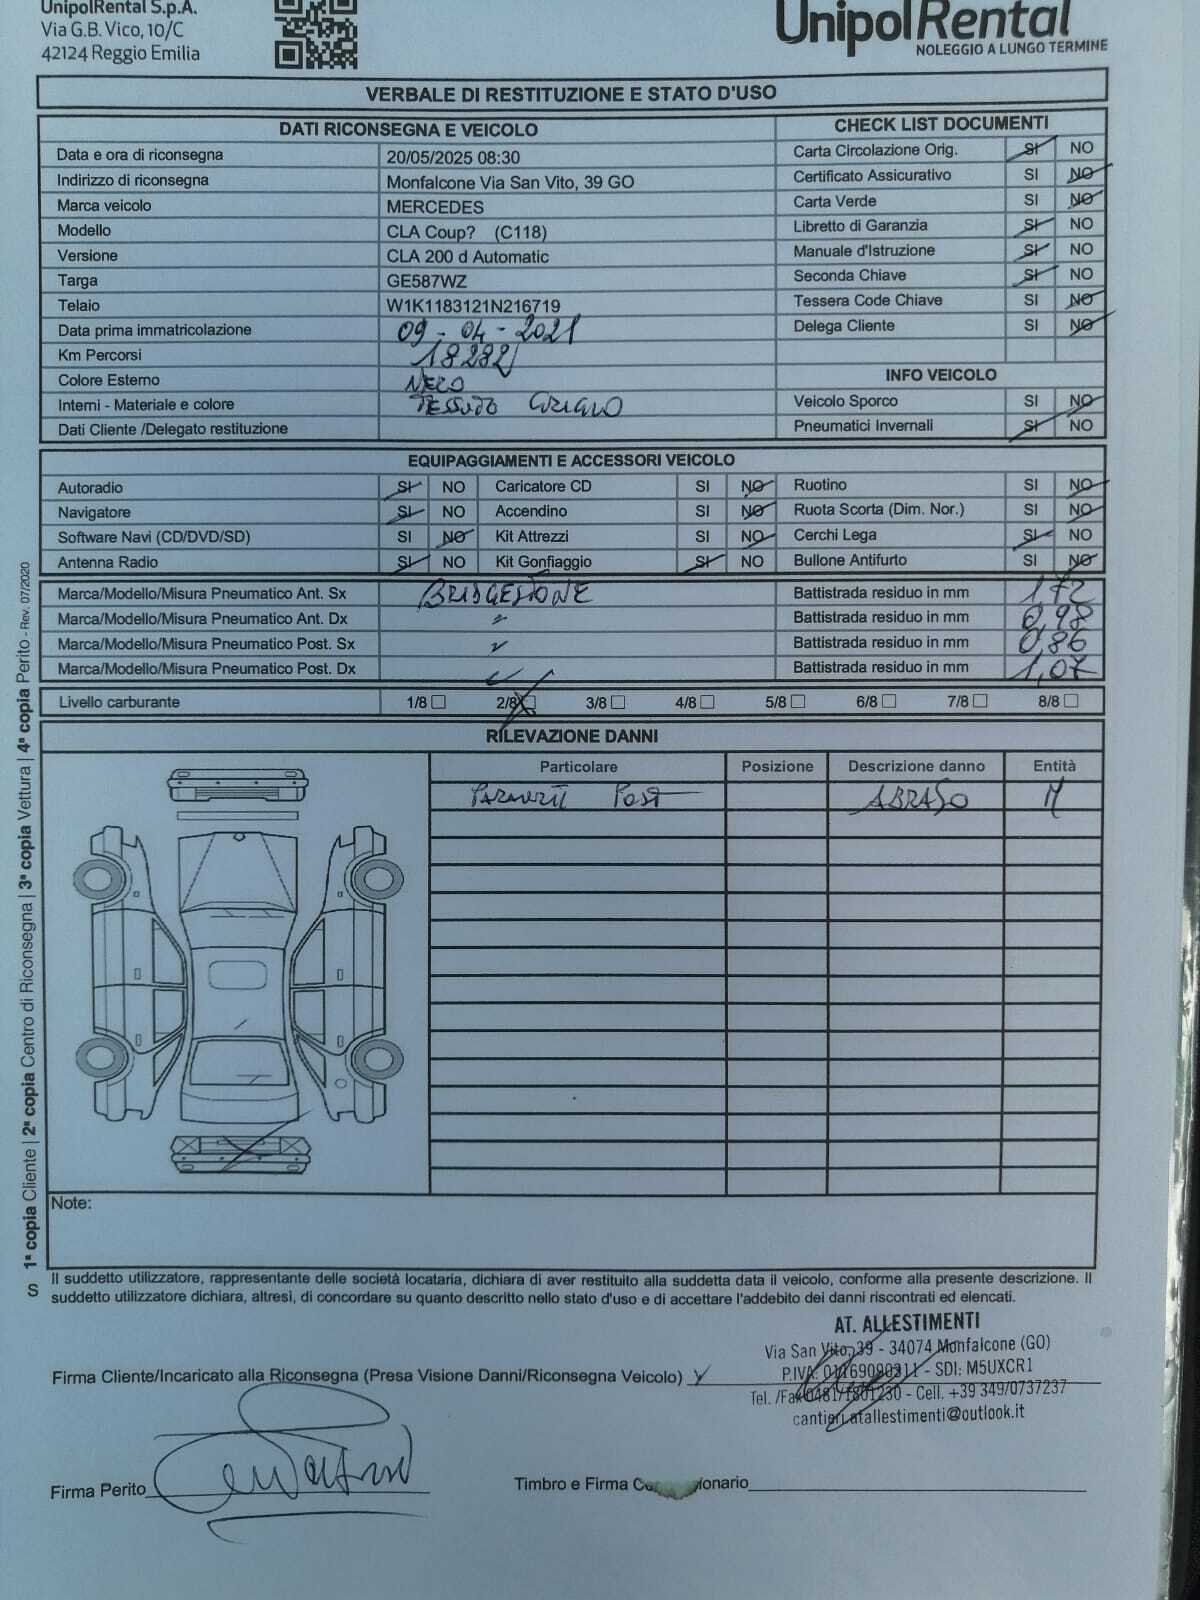 UnipolRental S.p.A.
Via G.B. Vico, 10/C
42124 Reggio Emilia
UnipolRental
NOLEGGIO A LUNGO TERMINE
VERBALE DI RESTITUZIONE E STATO D'USO
DATI RICONSEGNA E VEICOLO
Data e ora di riconsegna 20/05/2025 08:30
Indirizzo di riconsegna Monfalcone Via San Vito, 39 GO
Marca veicolo MERCEDES
Modello CLA Coup? (C118)
Versione CLA 200 d Automatic
Targa GE587WZ
Telaio W1K1183121N216719
Data prima immatricolazione 09-04-2021
Km Percorsi
Colore Esterno NERO
Interni - Materiale e colore TESSUTO
Dati Cliente /Delegato restituzione
CHECK LIST DOCUMENTI
Carta Circolazione Orig. SI NO
Certificato Assicurativo SI NO
Carta Verde SI NO
Libretto di Garanzia SI NO
Manuale d'Istruzione SI NO
Seconda Chiave SI NO
Tessera Code Chiave SI NO
Delega Cliente SI NO
INFO VEICOLO
Veicolo Sporco SI NO
Pneumatici Invernali SI NO
EQUIPAGGIAMENTI E ACCESSORI VEICOLO
Autoradio SI NO Caricatore CD SI NO Ruotino SI NO
Navigatore SI NO Accendino SI NO Ruota Scorta (Dim. Nor.) SI NO
Software Navi (CD/DVD/SD) SI NO Kit Attrezzi SI NO Cerchi Lega SI NO
Antenna Radio SI NO Kit Gonfiaggio SI NO Bullone Antifurto SI NO
Marca/Modello/Misura Pneumatico Ant. Sx BRIDGESTONE Battistrada residuo in mm 1,72
Marca/Modello/Misura Pneumatico Ant. Dx " Battistrada residuo in mm 0,98
Marca/Modello/Misura Pneumatico Post. Sx " Battistrada residuo in mm 0,86
Marca/Modello/Misura Pneumatico Post. Dx " Battistrada residuo in mm 1,07
Livello carburante 1/8 2/8 3/8 4/8 5/8 6/8 7/8 8/8
RILEVAZIONE DANNI
Particolare Posizione Descrizione danno Entità
PARAURTI POST ABRASO M
Note:
Il suddetto utilizzatore, rappresentante delle società locataria, dichiara di aver restituito alla suddetta data il veicolo, conforme alla presente descrizione. Il
suddetto utilizzatore dichiara, altresì, di concordare su quanto descritto nello stato d'uso e di accettare l'addebito dei danni riscontrati ed elencati.
AT. ALLESTIMENTI
Via San Vito, 39 - 34074 Monfalcone (GO)
P.IVA: 01169090311 - SDI: M5UXCR1
Tel. /Fax 0481/1801230 - Cell. +39 349/0737237
cantieri.atallestimenti@outlook.it
Firma Cliente/Incaricato alla Riconsegna (Presa Visione Danni/Riconsegna Veicolo)
Firma Perito
Timbro e Firma
S 1ª copia Cliente | 2ª copia Centro di Riconsegna | 3ª copia Vettura | 4ª copia Perito - Rev. 07/2020